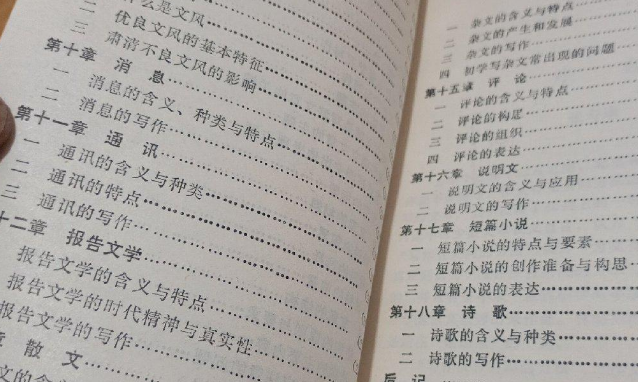 什么是文风
二 优良文风的基本特征
三 肃清不良文风的影响
第十章 消 息
一 消息的含义、种类与特点
二 消息的写作
第十一章 通 讯
一 通讯的含义与种类
二 通讯的特点
三 通讯的写作
十二章 报告文学
报告文学的含义与特点
报告文学的时代精神与真实性
报告文学的写作
散 文
文的含
一 杂文的含义与特点
二 杂文的产生和发展
三 杂文的写作
四 初学写杂文常出现的问题
第十五章 评 论
一 评论的含义与特点
二 评论的构思
三 评论的组织
四 评论的表达
第十六章 说明文
一 说明文的含义与应用
二 说明文的写作
第十七章 短篇小说
一 短篇小说的特点与要素
二 短篇小说的创作准备与构思
三 短篇小说的表达
第十八章 诗 歌
一 诗歌的含义与种类
二 诗歌的写作
后 记